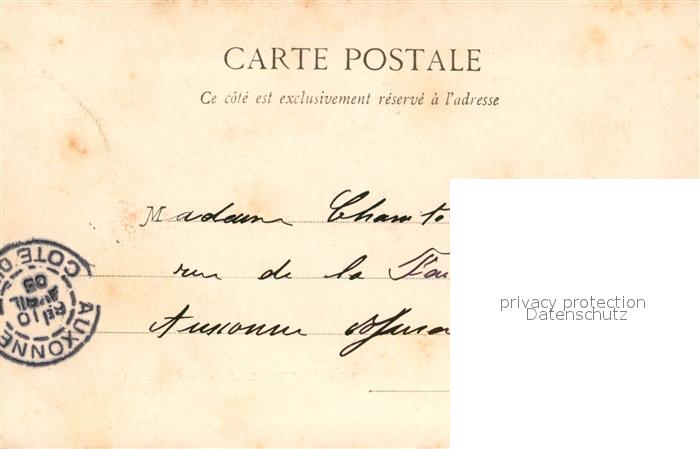 CARTE POSTALE
Ce côté est exclusivement réservé à l'adresse
Madame Chant
rue de la Fau
Auxonne
AUXONNE
CÔTE D
10
AVRIL
05
privacy protection
Datenschutz